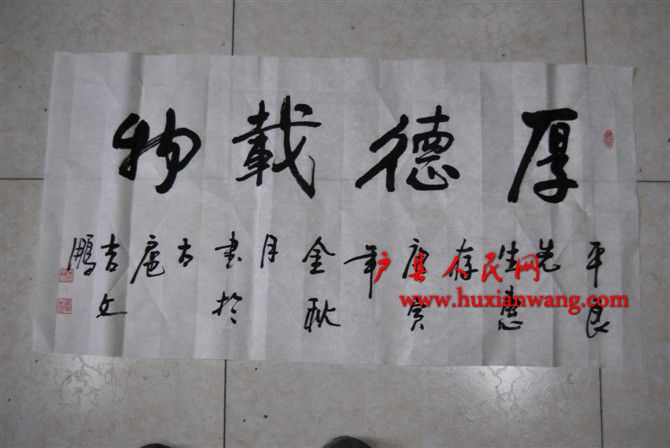 厚德載物
平良
先
生惠
存
庚寅
年
金秋
月
書於
古
扈
吉文
鵬
户县人民网
www.huxianwang.com